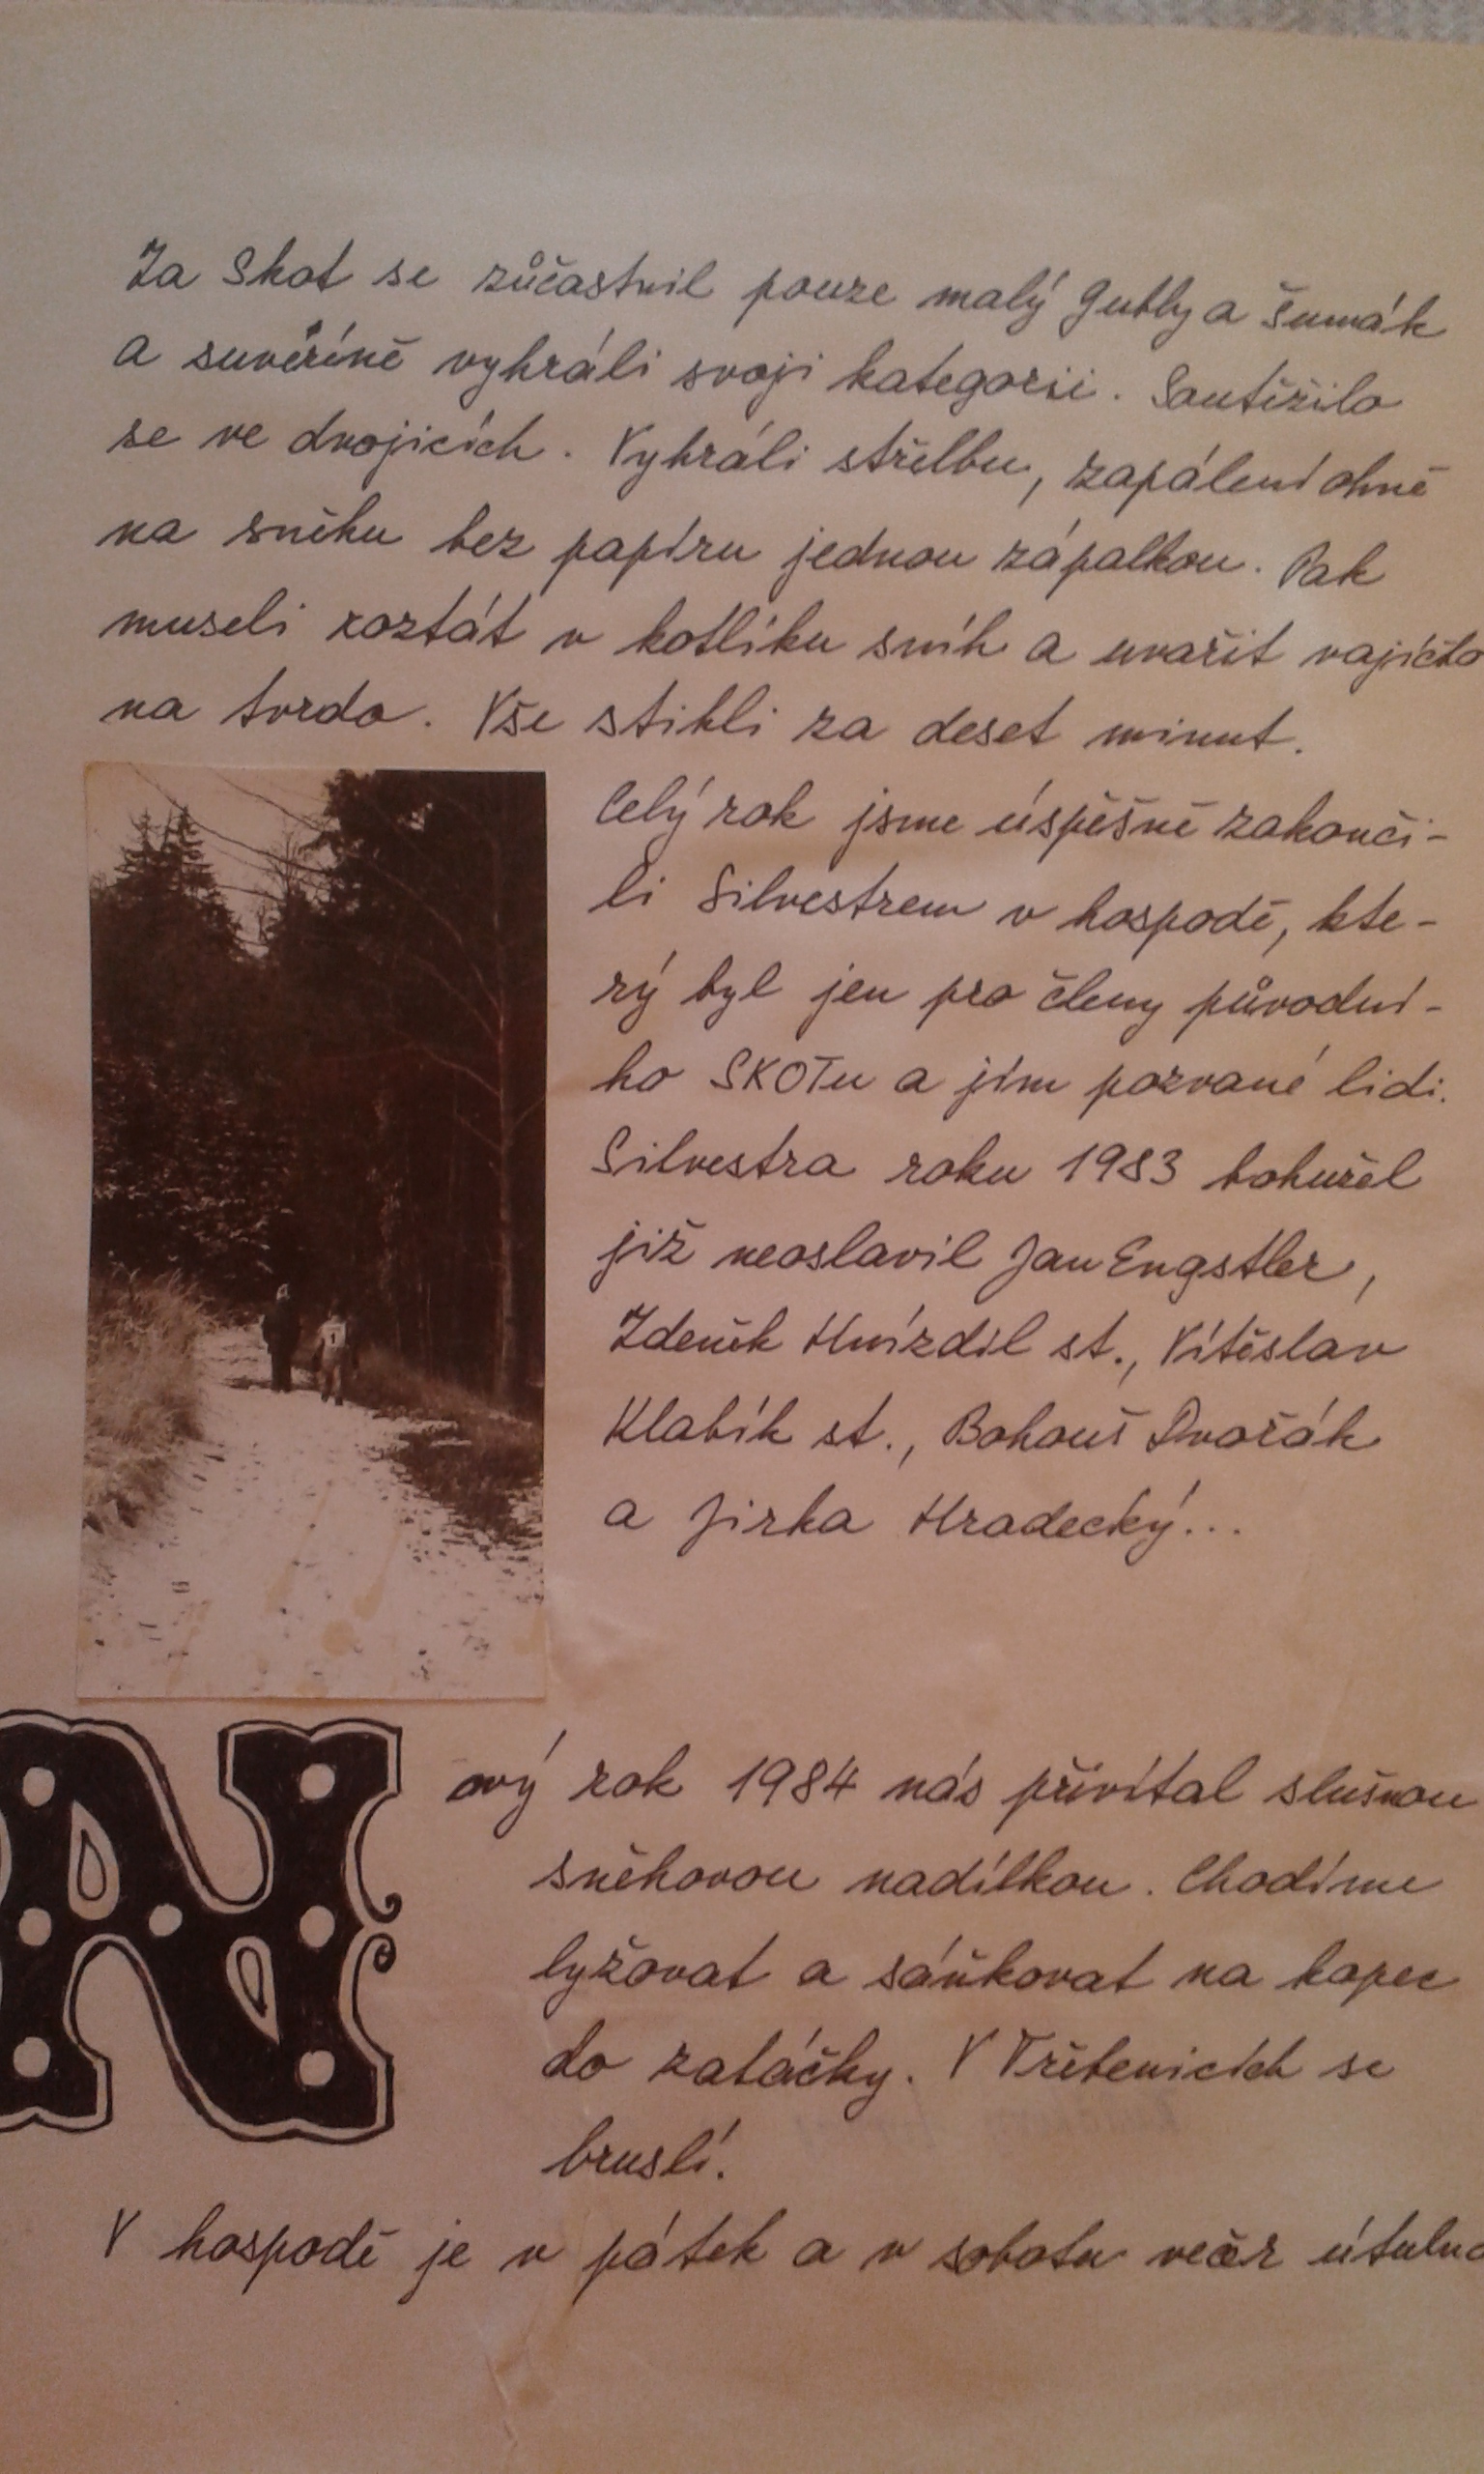 Za Skot se zůčastnil pouze malý Gutly a Šumák
a suvéříně vyhráli svoji kategorii. Soutěžilo
se ve dvojicích. Vyhráli střelbu, zapálení ohně
na sněhu bez papíru jednou zápalkou. Pak
museli roztát v kotlíku sníh a uvařit vajíčko
na tvrdo. Vše stihli za deset minut.
Celý rok jsme úspěšně zakonči-
li Silvestrem v hospodě, kte-
rý byl jen pro členy původní-
ho SKOTu a jím pozvané lidi.
Silvestra roku 1983 bohužel
již neoslavil Jan Engstler,
Zdeněk Hnízdil st., Vítěslav
Klabík st., Bohouš Dvořák
a Jirka Hradecký...
1
Nový rok 1984 nás přivítal slušnou
sněhovou nadílkou. Chodíme
lyžovat a sáňkovat na kopec
do zatáčky. V Třebenicích se
bruslí.
V hospodě je v pátek a v sobotu večer útulno